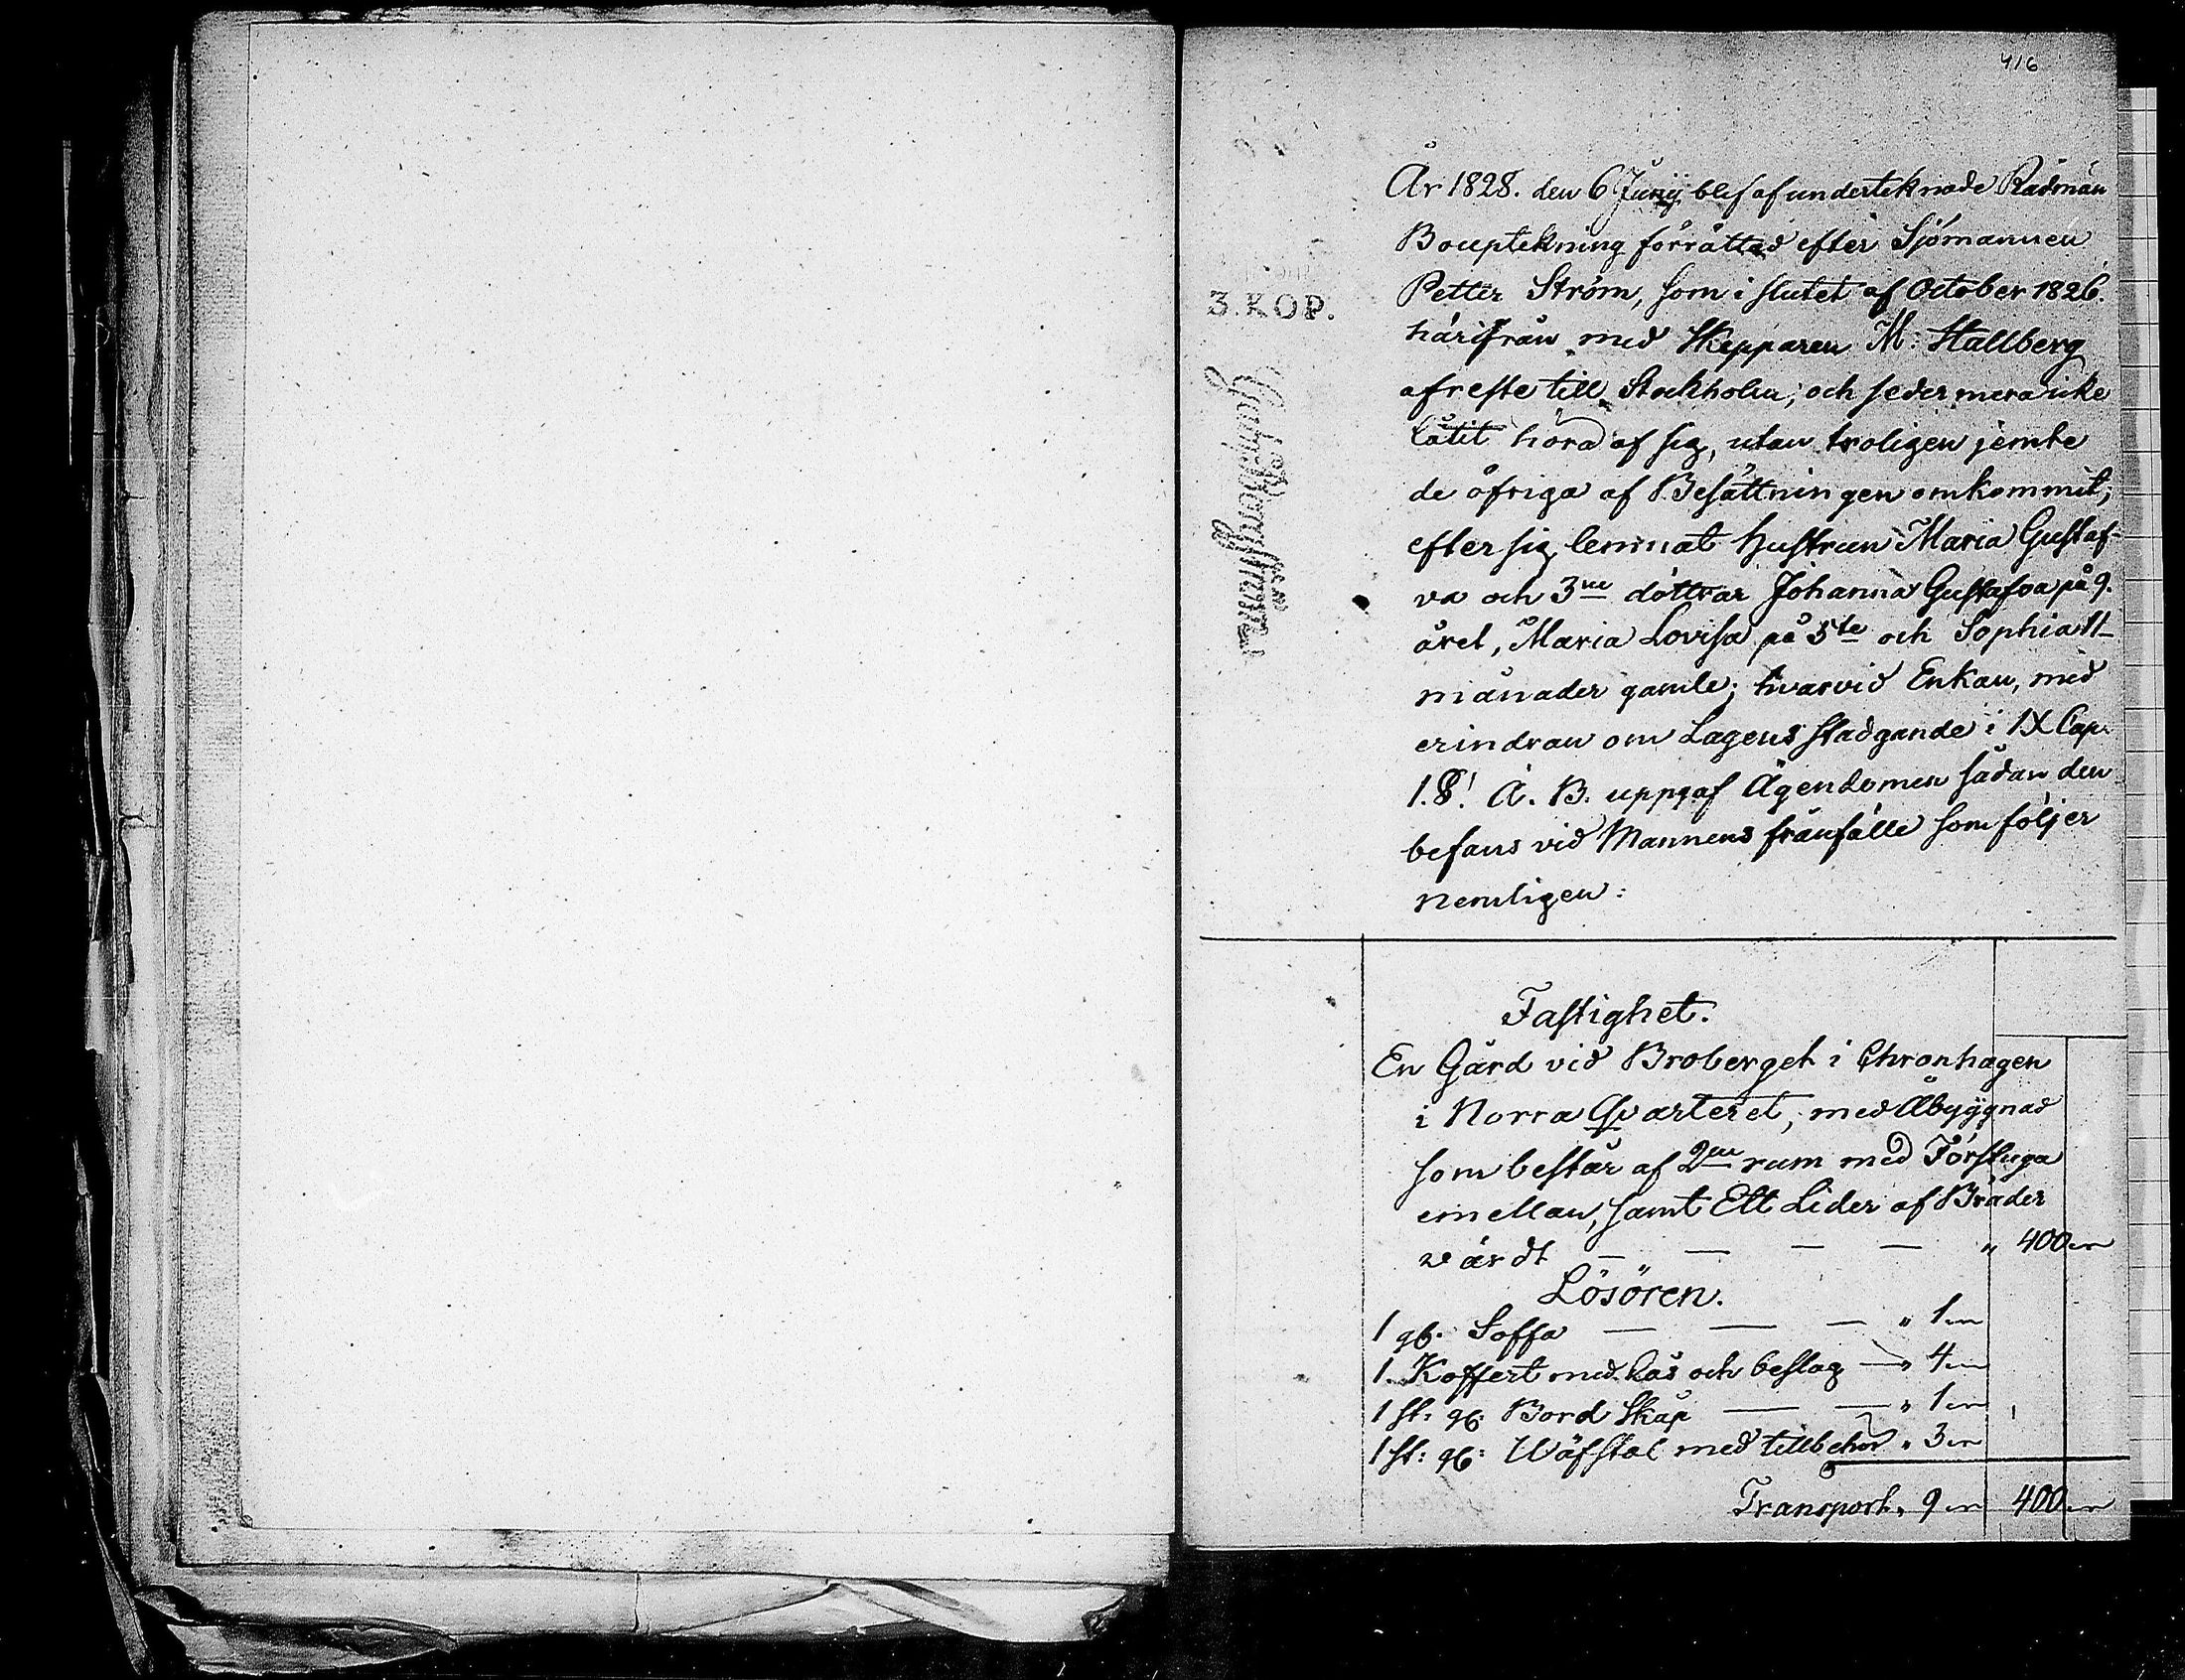 416
År 1828. den 6 Junij blef af underteknade Rådmän
Bouptekning förrättad efter Sjömannen
Petter Ström, som i slutet af October 1826.
3.KOP.
härifrån med Skepparen M: Stallberg
afreste till Stockholm; och sedermera icke
låtit höra af sig, utan troligen jemte
de öfriga af Besättningen omkommit;
efter sig lemnat hustrun Maria Gustaf-
va och 3ne döttrar Johanna Gustafva på 9.
året, Maria Lovisa på 5te och Sophia 11
månader gamle; hvarvid Enkan, med
erindran om Lagens stadgande i IX Cap.
1.§! Ä. B. uppgaf Ägendomen sådan den
befans vid Mannens frånfälle som följer
nemligen:
Fastighet.
En Gård vid Broberget i Chronhagen
i Norra Qvarteret, med Åbyggnad
som består af 2ne rum med Förstuga
emellan, samt Ett Lider af Bräder
värdt — — — — " 400 "
Lösören.
1 gl. Soffa — — — " 1 "
1. Koffert med lås och beslag — " 4 "
1 st: gl: Bord Skåp — — " 1 "
1 st: gl: Wäfstol med tillbehör " 3 "
Transport " 9 " 400 "